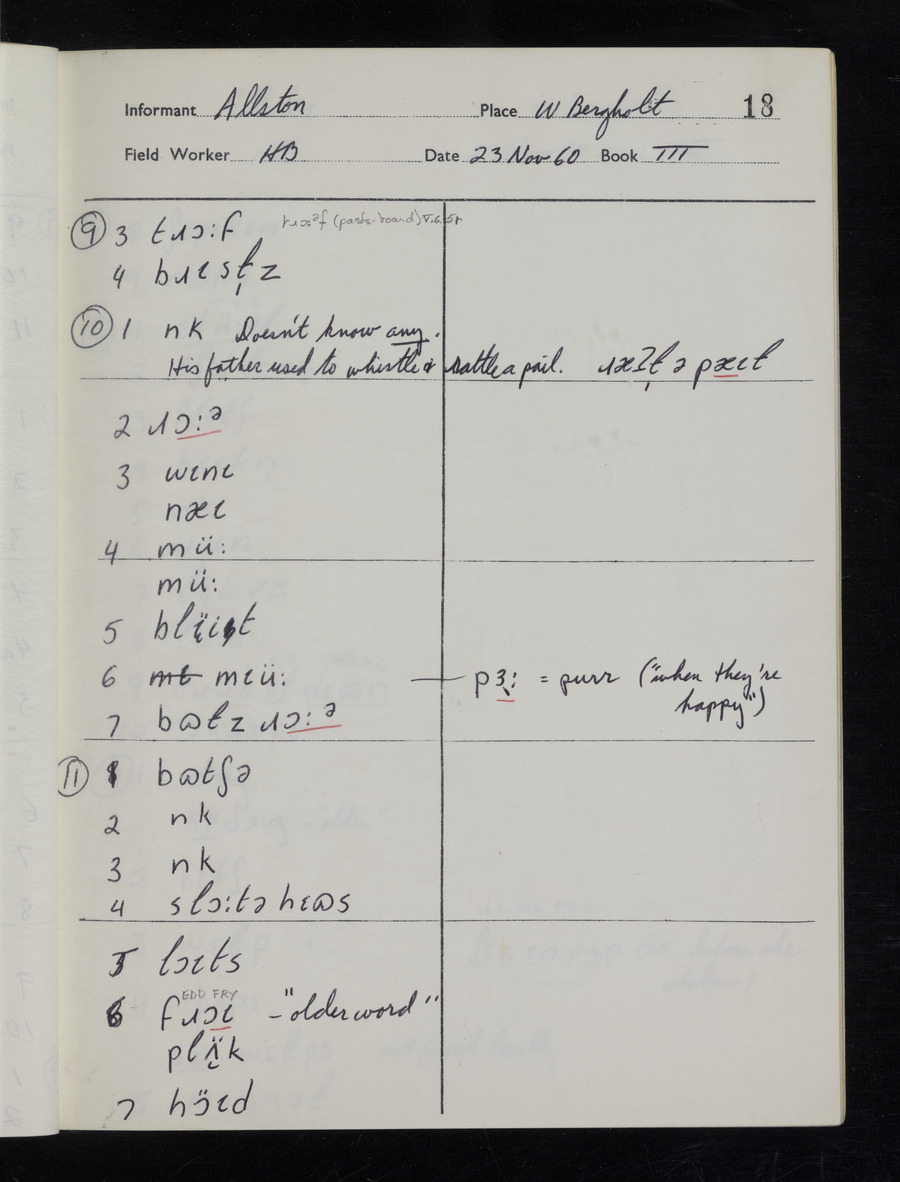 Informant Allston Place W Bergholt 18
Field Worker HB Date 23 Nov 60 Book III
⑨ 3 tɹɔ:f tɹɔ:ᵊf (pasts-board) V.6.5r
4 bɹɛsţz
⑩ 1 nk Doesn't know any.
His father used to whistle & rattle a pail. ɹæʔɫ ə pæɩɫ
2 ɹɔ:ᵊ
3 wɩnɩ
næɩ
4 mü:
mü:
5 blɩ̈it
6 mɩü: — pɜ: = purr ("when they're
happy")
7 bʊɫz ɹɔ:ᵊ
⑪ 1 bʊtʃə
2 nk
3 nk
4 slɔ:tə hɛʊs
5 lɔɩts
EDD FRY
6 fɹɔɩ - "older word"
plʌ̈k
7 hɔ̈ɩd